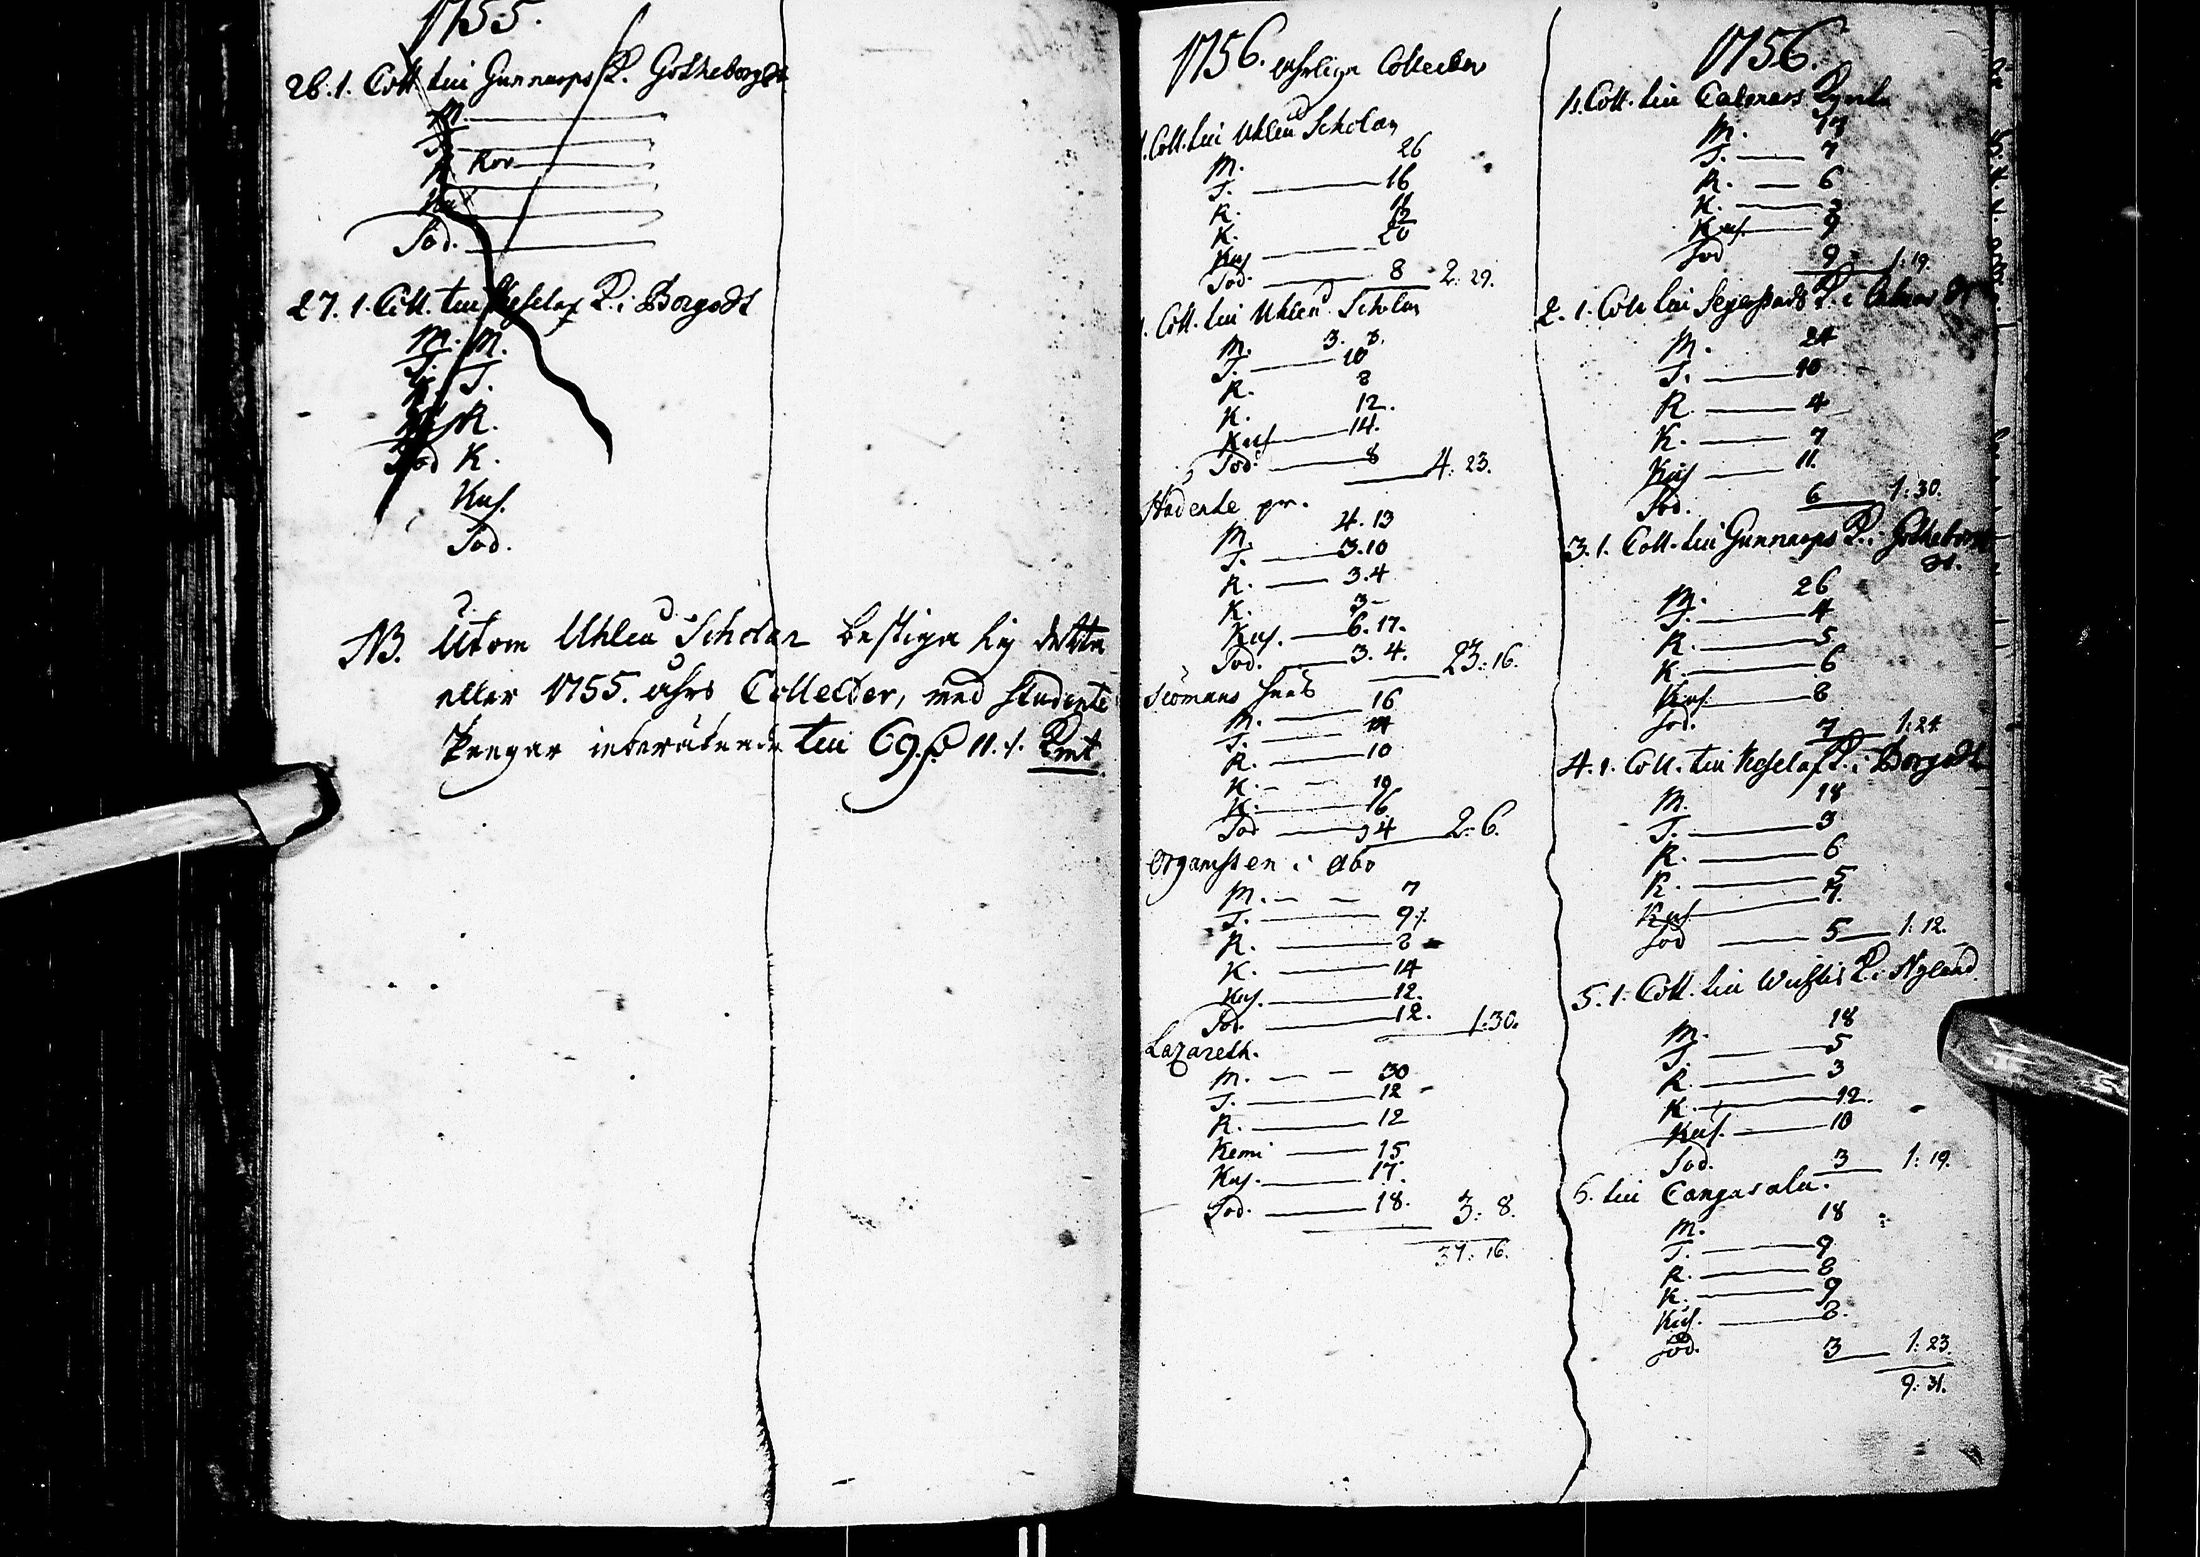 1755.
26. 1. Coll. till Gunnarps K. Gotheborgs
M.
T.
R. Kor
Kus
Sod.
27. 1. Coll. till Heselaf K. i Borgo St
M. M.
T. T.
R.
K.
Sod K.
Kus.
Sod.
NB. Utom Uhleå Scholar bestiga sig detta
eller 1755. åhrs Collecter, med studente
Pengar inberäknade till 69. 11. Kmt.
1756. åhrliga Collecter
1. Coll. till Uhleå Scholan
M. 26
T. 16
R. 11
K. 12
Kus 20
Sod. 8 2: 29.
1. Coll. till Uhleå Scholan
M. 3. 8.
T. 10
R. 8
K. 12.
Kus 14.
Sod. 8 4: 23.
Studente pr.
M. 4. 13
T. 3. 10
R. 3. 4
K. 3 -
Kus. 6. 17.
Sod. 3. 4. 23: 16.
Siömans huus
M. 16
T. 14
R. 10
K. 19
K. 16
Sod 4 2: 6.
Organisten i Abo
M. 7
T. 9
R. 8
K. 14
Kus. 12.
Sod. 12. 1: 30.
Lazareth.
M. 30
T. 12
R. 12
Kemi 15
Kus. 17.
Sod. 18. 3: 8.
37: 16.
1756.
1. Coll. till Calmars Kyrka
M. 17
T. 7
R. 6
K. 3
Kus. 9
Sod 9 1: 19.
2. 1. Coll till Segerstads K. i Calmar St
M. 24
T. 10
R. 4
K. 7
Kus 11.
Sod. 6 1: 30.
3. 1. Coll. till Gunnarps K. i Gotheborgs
St.
M. 26
T. 4
R. 5
K. 6
Kus. 8
Sod. 7 1: 24
4. 1. Coll. till Heselaf K. i Borgo St
M. 18
T. 3
R. 6
K. 5
Kus. 7.
Sod 5 1: 12.
5. 1. Coll. till Wichtis K. i Nyland
M. 18
T. 5
R. 3
K. 12.
Kus. 10
Sod. 3 1: 19.
6. till Cangasala.
M. 18
T. 9
R. 8
K. 9
Kus. 8.
Sod. 3 1: 23.
9: 31.